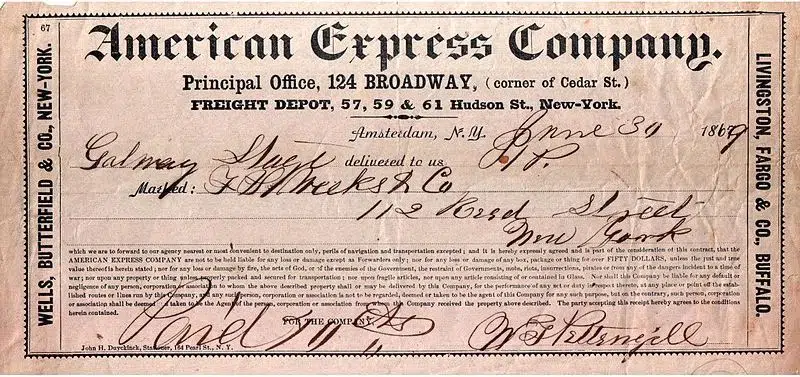 67
American Express Company.
Principal Office, 124 BROADWAY, (corner of Cedar St.)
FREIGHT DEPOT, 57, 59 & 61 Hudson St., New-York.
WELLS, BUTTERFIELD & CO., NEW-YORK.
LIVINGSTON, FARGO & CO., BUFFALO.
Amsterdam, N.Y. June 30 1869
Galway Stage delivered to us
Marked: & Co
112 Read Street
New York
which we are to forward to our agency nearest or most convenient to destination only, perils of navigation and transportation excepted; and it is hereby expressly agreed and is part of the consideration of this contract, that the
AMERICAN EXPRESS COMPANY are not to be held liable for any loss or damage except as Forwarders only; nor for any loss or damage of any box, package or thing for over FIFTY DOLLARS, unless the just and true
value thereof is herein stated; nor for any loss or damage by fire, the acts of God, or of the enemies of the Government, the restraint of Governments, mobs, riots, insurrections, pirates or from any of the dangers incident to a time of
war; nor upon any property or thing unless properly packed and secured for transportation; nor upon fragile articles, nor upon any article consisting of or contained in Glass. Nor shall this Company be liable for any default or
negligence of any person, corporation or association to whom the above described property shall or may be delivered by this Company, for the performance of any act or duty in respect thereto, at any place or point off the estab-
lished routes or lines run by this Company; and any such person, corporation or association is not to be regarded, deemed or taken to be the agent of this Company for any such purpose, but on the contrary, such person, corporation
or association shall be deemed and taken to be the Agent of the person, corporation or association from whom this Company received the property above described. The party accepting this receipt hereby agrees to the conditions
herein contained.
FOR THE COMPANY,
Paid
John H. Duyckinck, Stationer, 164 Pearl St., N. Y.